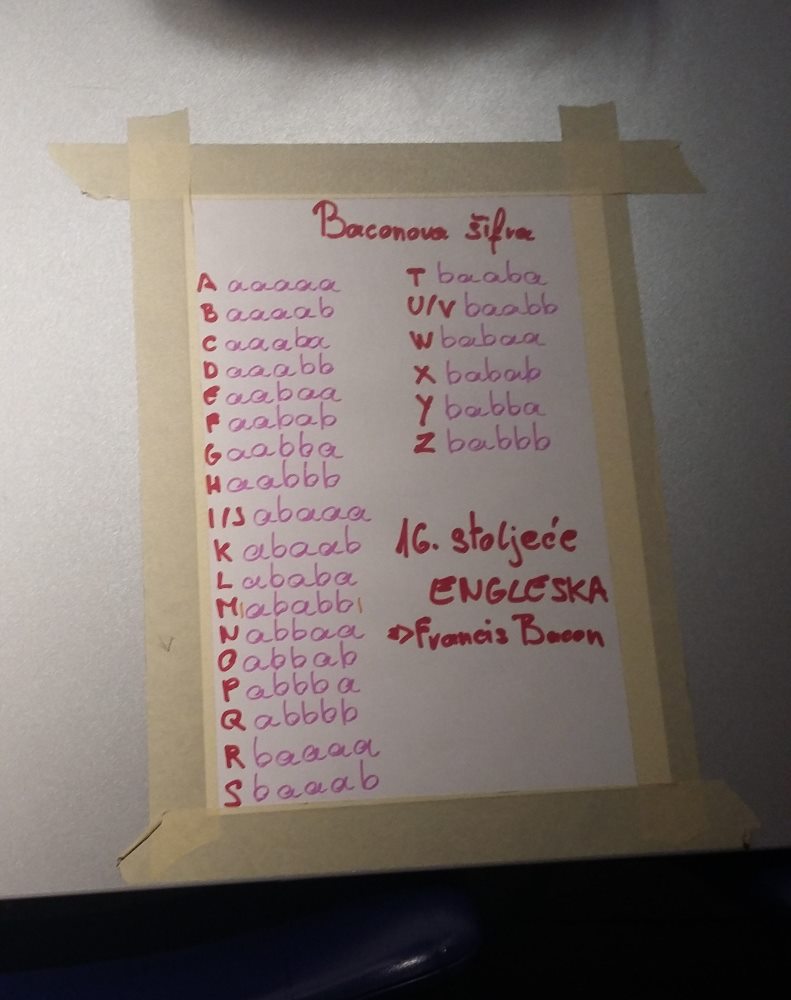 Baconova šifra
A aaaaa
B aaaab
C aaaba
D aaabb
E aabaa
F aabab
G aabba
H aabbb
I/J abaaa
K abaab
L ababa
M ababb
N abbaa
O abbab
P abbba
Q abbbb
R baaaa
S baaab
T baaba
U/V baabb
W babaa
X babab
Y babba
Z babbb
16. stoljeće
ENGLESKA
=> Francis Bacon